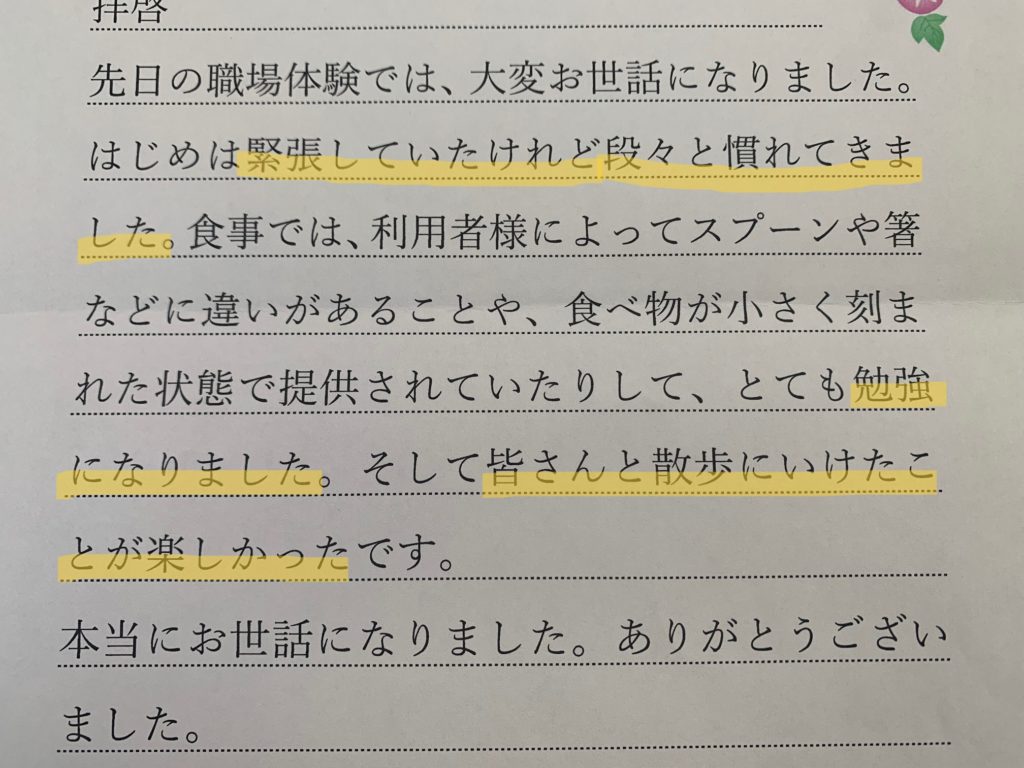 拝啓
先日の職場体験では、大変お世話になりました。
はじめは緊張していたけれど段々と慣れてきま
した。食事では、利用者様によってスプーンや箸
などに違いがあることや、食べ物が小さく刻ま
れた状態で提供されていたりして、とても勉強
になりました。そして皆さんと散歩にいけたこ
とが楽しかったです。
本当にお世話になりました。ありがとうござい
ました。